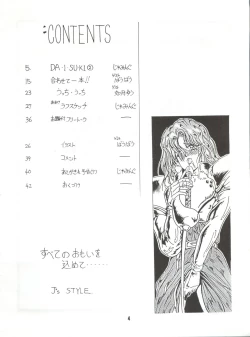 CONTENTS
5. DA・I・SUKI② じゃみんぐ
15 合わせて一本!! ばうばう
23 うっち・うっち
27 ラフスケッチ じゃみんぐ
36 フリートーク
26 イラスト ばうばう
39 コメント
40 じゃみんぐ
42 おくづけ
すべてのおもいを
込めて・・・・・・
J's STYLE
4